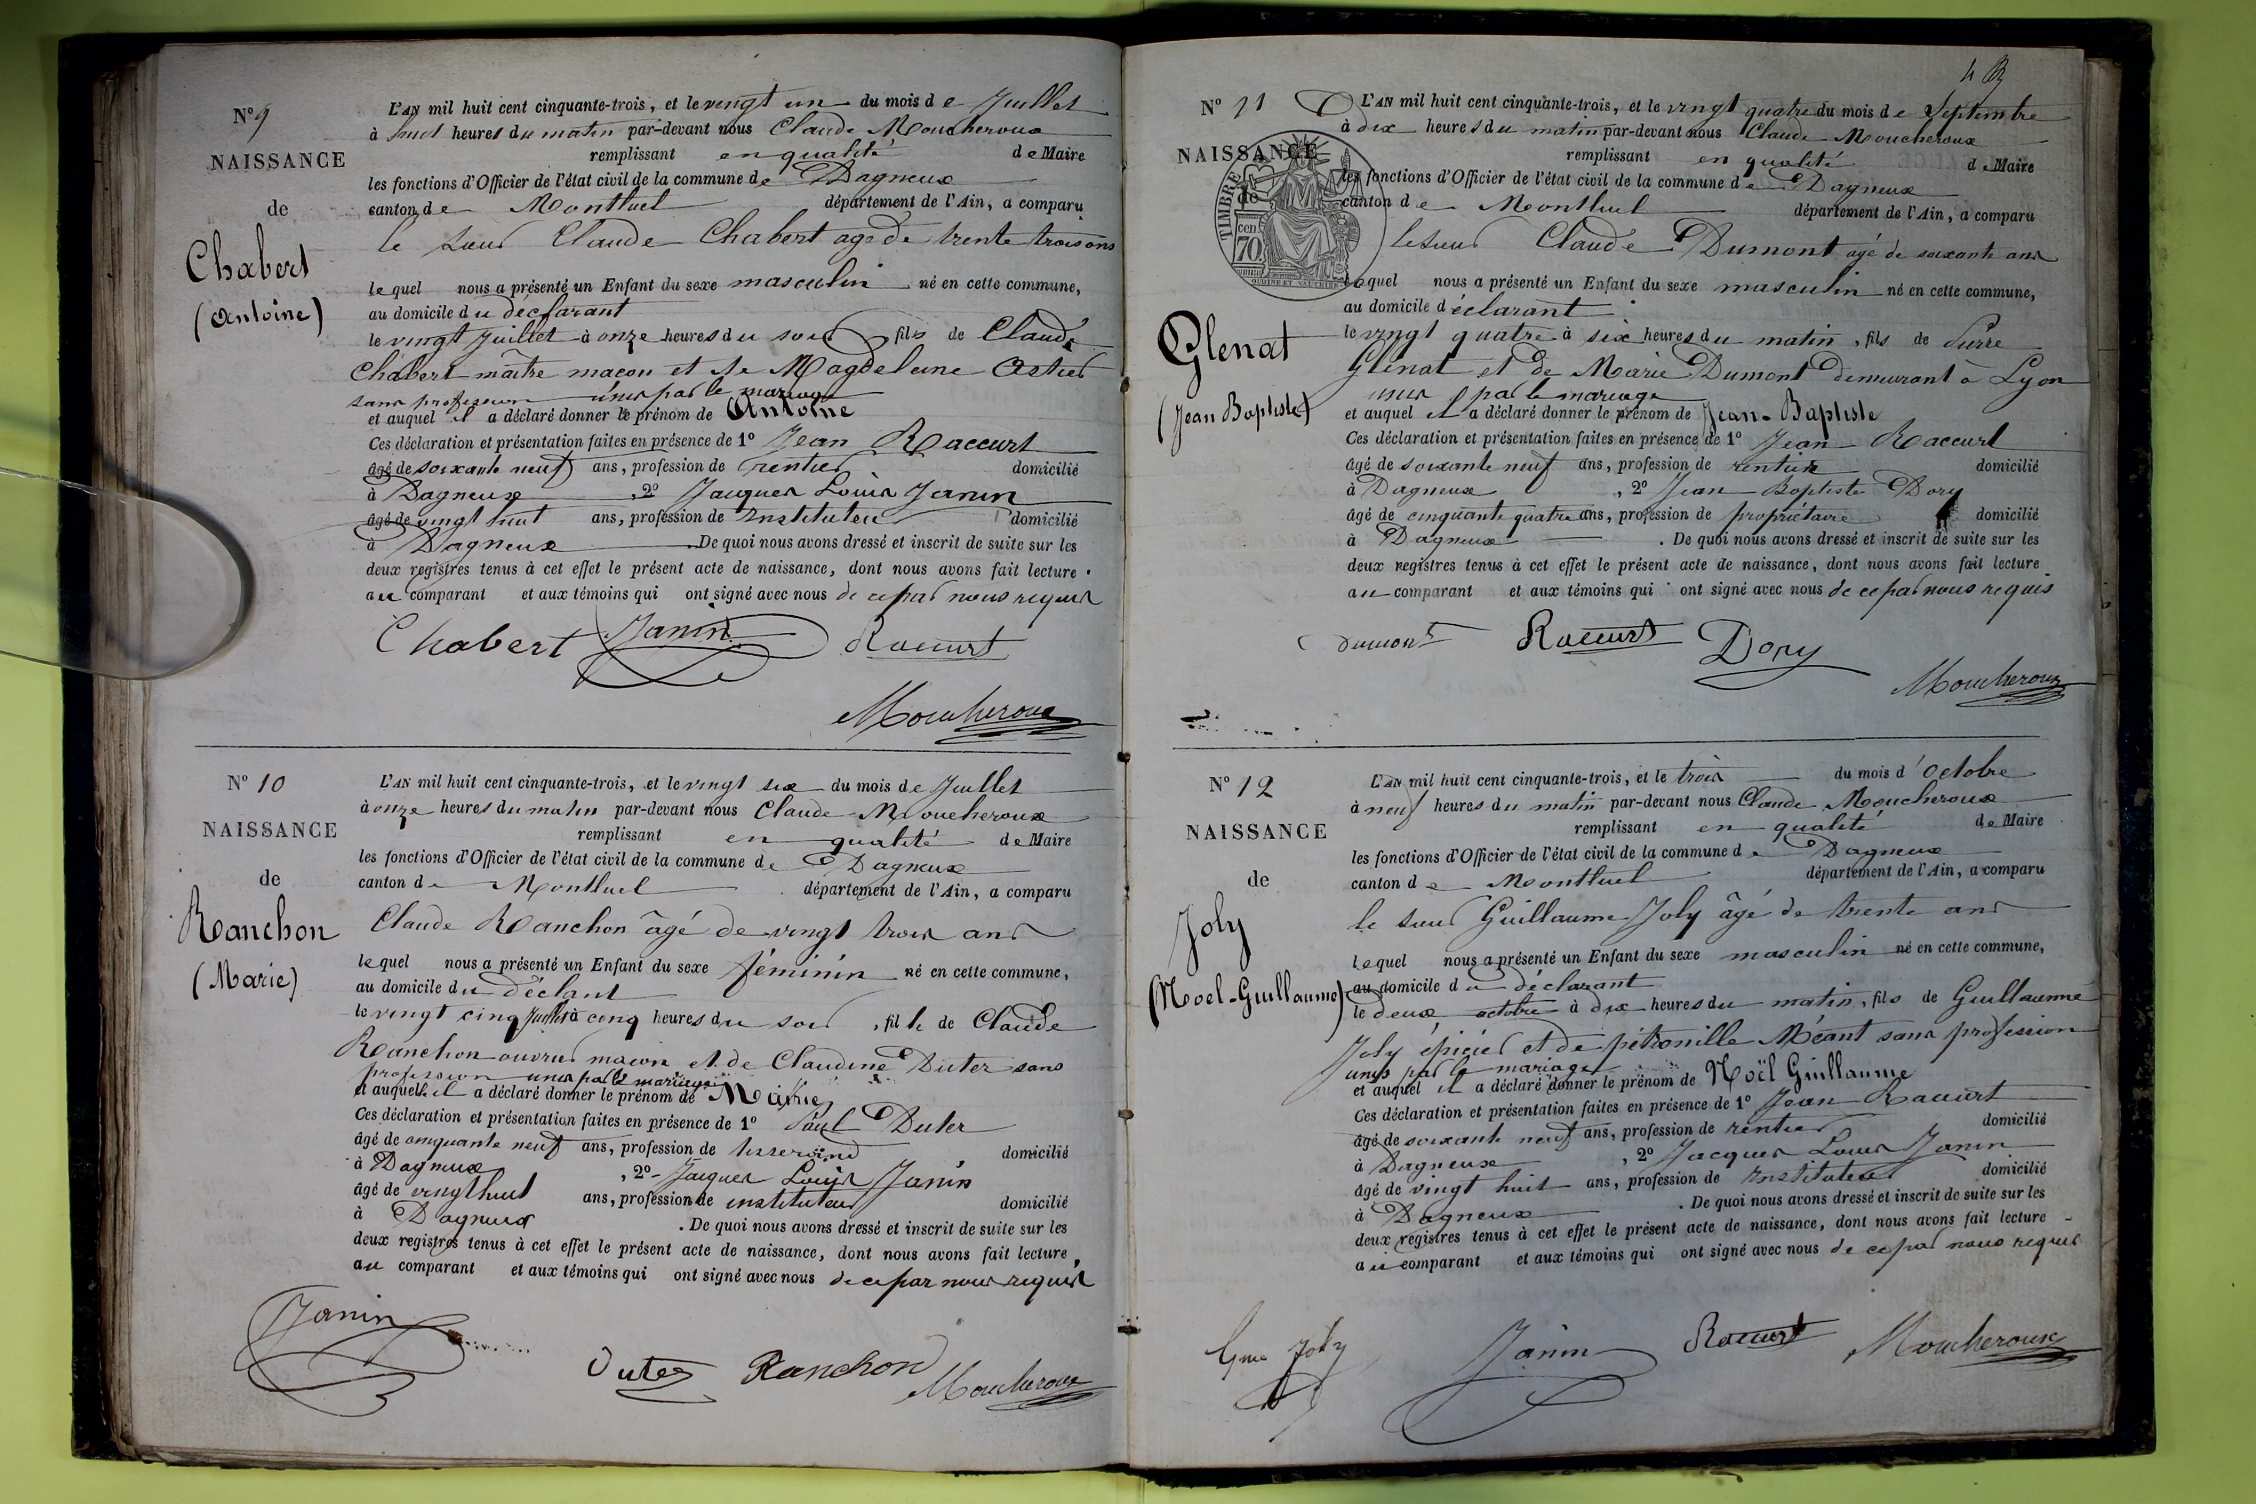 N° 9
NAISSANCE
de
Chabert
(Antoine)
L'AN mil huit cent cinquante-trois, et le vingt un du mois de Juillet
à huit heures du matin par-devant nous Claude Moucheroux
remplissant en qualité de Maire
les fonctions d'Officier de l'état civil de la commune de Dagneux
canton de Montluel département de l'Ain, a comparu
le sieur Claude Chabert agé de trente trois ans
lequel nous a présenté un Enfant du sexe masculin né en cette commune,
au domicile du déclarant
le vingt Juillet à onze heures du soir fils de Claude
Chabert maître maçon et de Magdeleine Astier
sans profession unis par le mariage
et auquel il a déclaré donner le prénom de Antoine
Ces déclaration et présentation faites en présence de 1° Jean Raccurt
âgé de soixante neuf ans, profession de rentier domicilié
à Dagneux, 2° Jacques Louis Janin
âgé de vingt huit ans, profession de Instituteur domicilié
à Dagneux. De quoi nous avons dressé et inscrit de suite sur les
deux registres tenus à cet effet le présent acte de naissance, dont nous avons fait lecture
au comparant et aux témoins qui ont signé avec nous de ce par nous requis
Chabert Janin Raccurt
Moucheroux
N° 10
NAISSANCE
de
Ranchon
(Marie)
L'AN mil huit cent cinquante-trois, et le vingt six du mois de Juillet
à onze heures du matin par-devant nous Claude Moucheroux
remplissant en qualité de Maire
les fonctions d'Officier de l'état civil de la commune de Dagneux
canton de Montluel département de l'Ain, a comparu
Claude Ranchon âgé de vingt trois ans
lequel nous a présenté un Enfant du sexe féminin né en cette commune,
au domicile du déclant
le vingt cinq Juillet à cinq heures du soir, fille de Claude
Ranchon ouvrier maçon et de Claudine Duter sans
profession unis par le mariage
et auquel il a déclaré donner le prénom de Marie
Ces déclaration et présentation faites en présence de 1° Paul Duter
âgé de cinquante neuf ans, profession de tisserand domicilié
à Dagneux, 2° Jacques Louis Janin
âgé de vingt huit ans, profession de instituteur domicilié
à Dagneux. De quoi nous avons dressé et inscrit de suite sur les
deux registres tenus à cet effet le présent acte de naissance, dont nous avons fait lecture,
au comparant et aux témoins qui ont signé avec nous de ce par nous requis
Janin
Duter Ranchon Moucheroux
N° 11
NAISSANCE
de
TIMBRE
70 cen
Glenat
(Jean Baptiste)
L'AN mil huit cent cinquante-trois, et le vingt quatre du mois de Septembre
à dix heures du matin par-devant nous Claude Moucheroux
remplissant en qualité de Maire
les fonctions d'Officier de l'état civil de la commune de Dagneux
canton de Montluel département de l'Ain, a comparu
le sieur Claude Dumont agé de soixante ans
lequel nous a présenté un Enfant du sexe masculin né en cette commune,
au domicile déclarant
le vingt quatre à six heures du matin, fils de Pierre
Glénat et de Marie Dumont demeurant à Lyon
unis par le mariage
et auquel il a déclaré donner le prénom de Jean-Baptiste
Ces déclaration et présentation faites en présence de 1° Jean Raccurt
âgé de soixante neuf ans, profession de rentier domicilié
à Dagneux, 2° Jean Baptiste Dory
âgé de cinquante quatre ans, profession de propriétaire domicilié
à Dagneux. De quoi nous avons dressé et inscrit de suite sur les
deux registres tenus à cet effet le présent acte de naissance, dont nous avons fait lecture
au comparant et aux témoins qui ont signé avec nous de ce par nous requis
dumont Raccurt Dory
Moucheroux
N° 12
NAISSANCE
de
Joly
(Noel-Guillaume)
L'AN mil huit cent cinquante-trois, et le trois du mois d'octobre
à neuf heures du matin par-devant nous Claude Moucheroux
remplissant en qualité de Maire
les fonctions d'Officier de l'état civil de la commune de Dagneux
canton de Montluel département de l'Ain, a comparu
le sieur Guillaume Joly âgé de trente ans
lequel nous a présenté un Enfant du sexe masculin né en cette commune,
au domicile du déclarant
le deux octobre à dix heures du matin, fils de Guillaume
Joly épicier et de pétronille Méant sans profession
unis par le mariage
et auquel il a déclaré donner le prénom de Noël Guillaume
Ces déclaration et présentation faites en présence de 1° Jean Raccurt
âgé de soixante neuf ans, profession de rentier domicilié
à Dagneux, 2° Jacques Louis Janin
âgé de vingt huit ans, profession de Instituteur domicilié
à Dagneux. De quoi nous avons dressé et inscrit de suite sur les
deux registres tenus à cet effet le présent acte de naissance, dont nous avons fait lecture
au comparant et aux témoins qui ont signé avec nous de ce par nous requis
Gme Joly Janin Raccurt Moucheroux